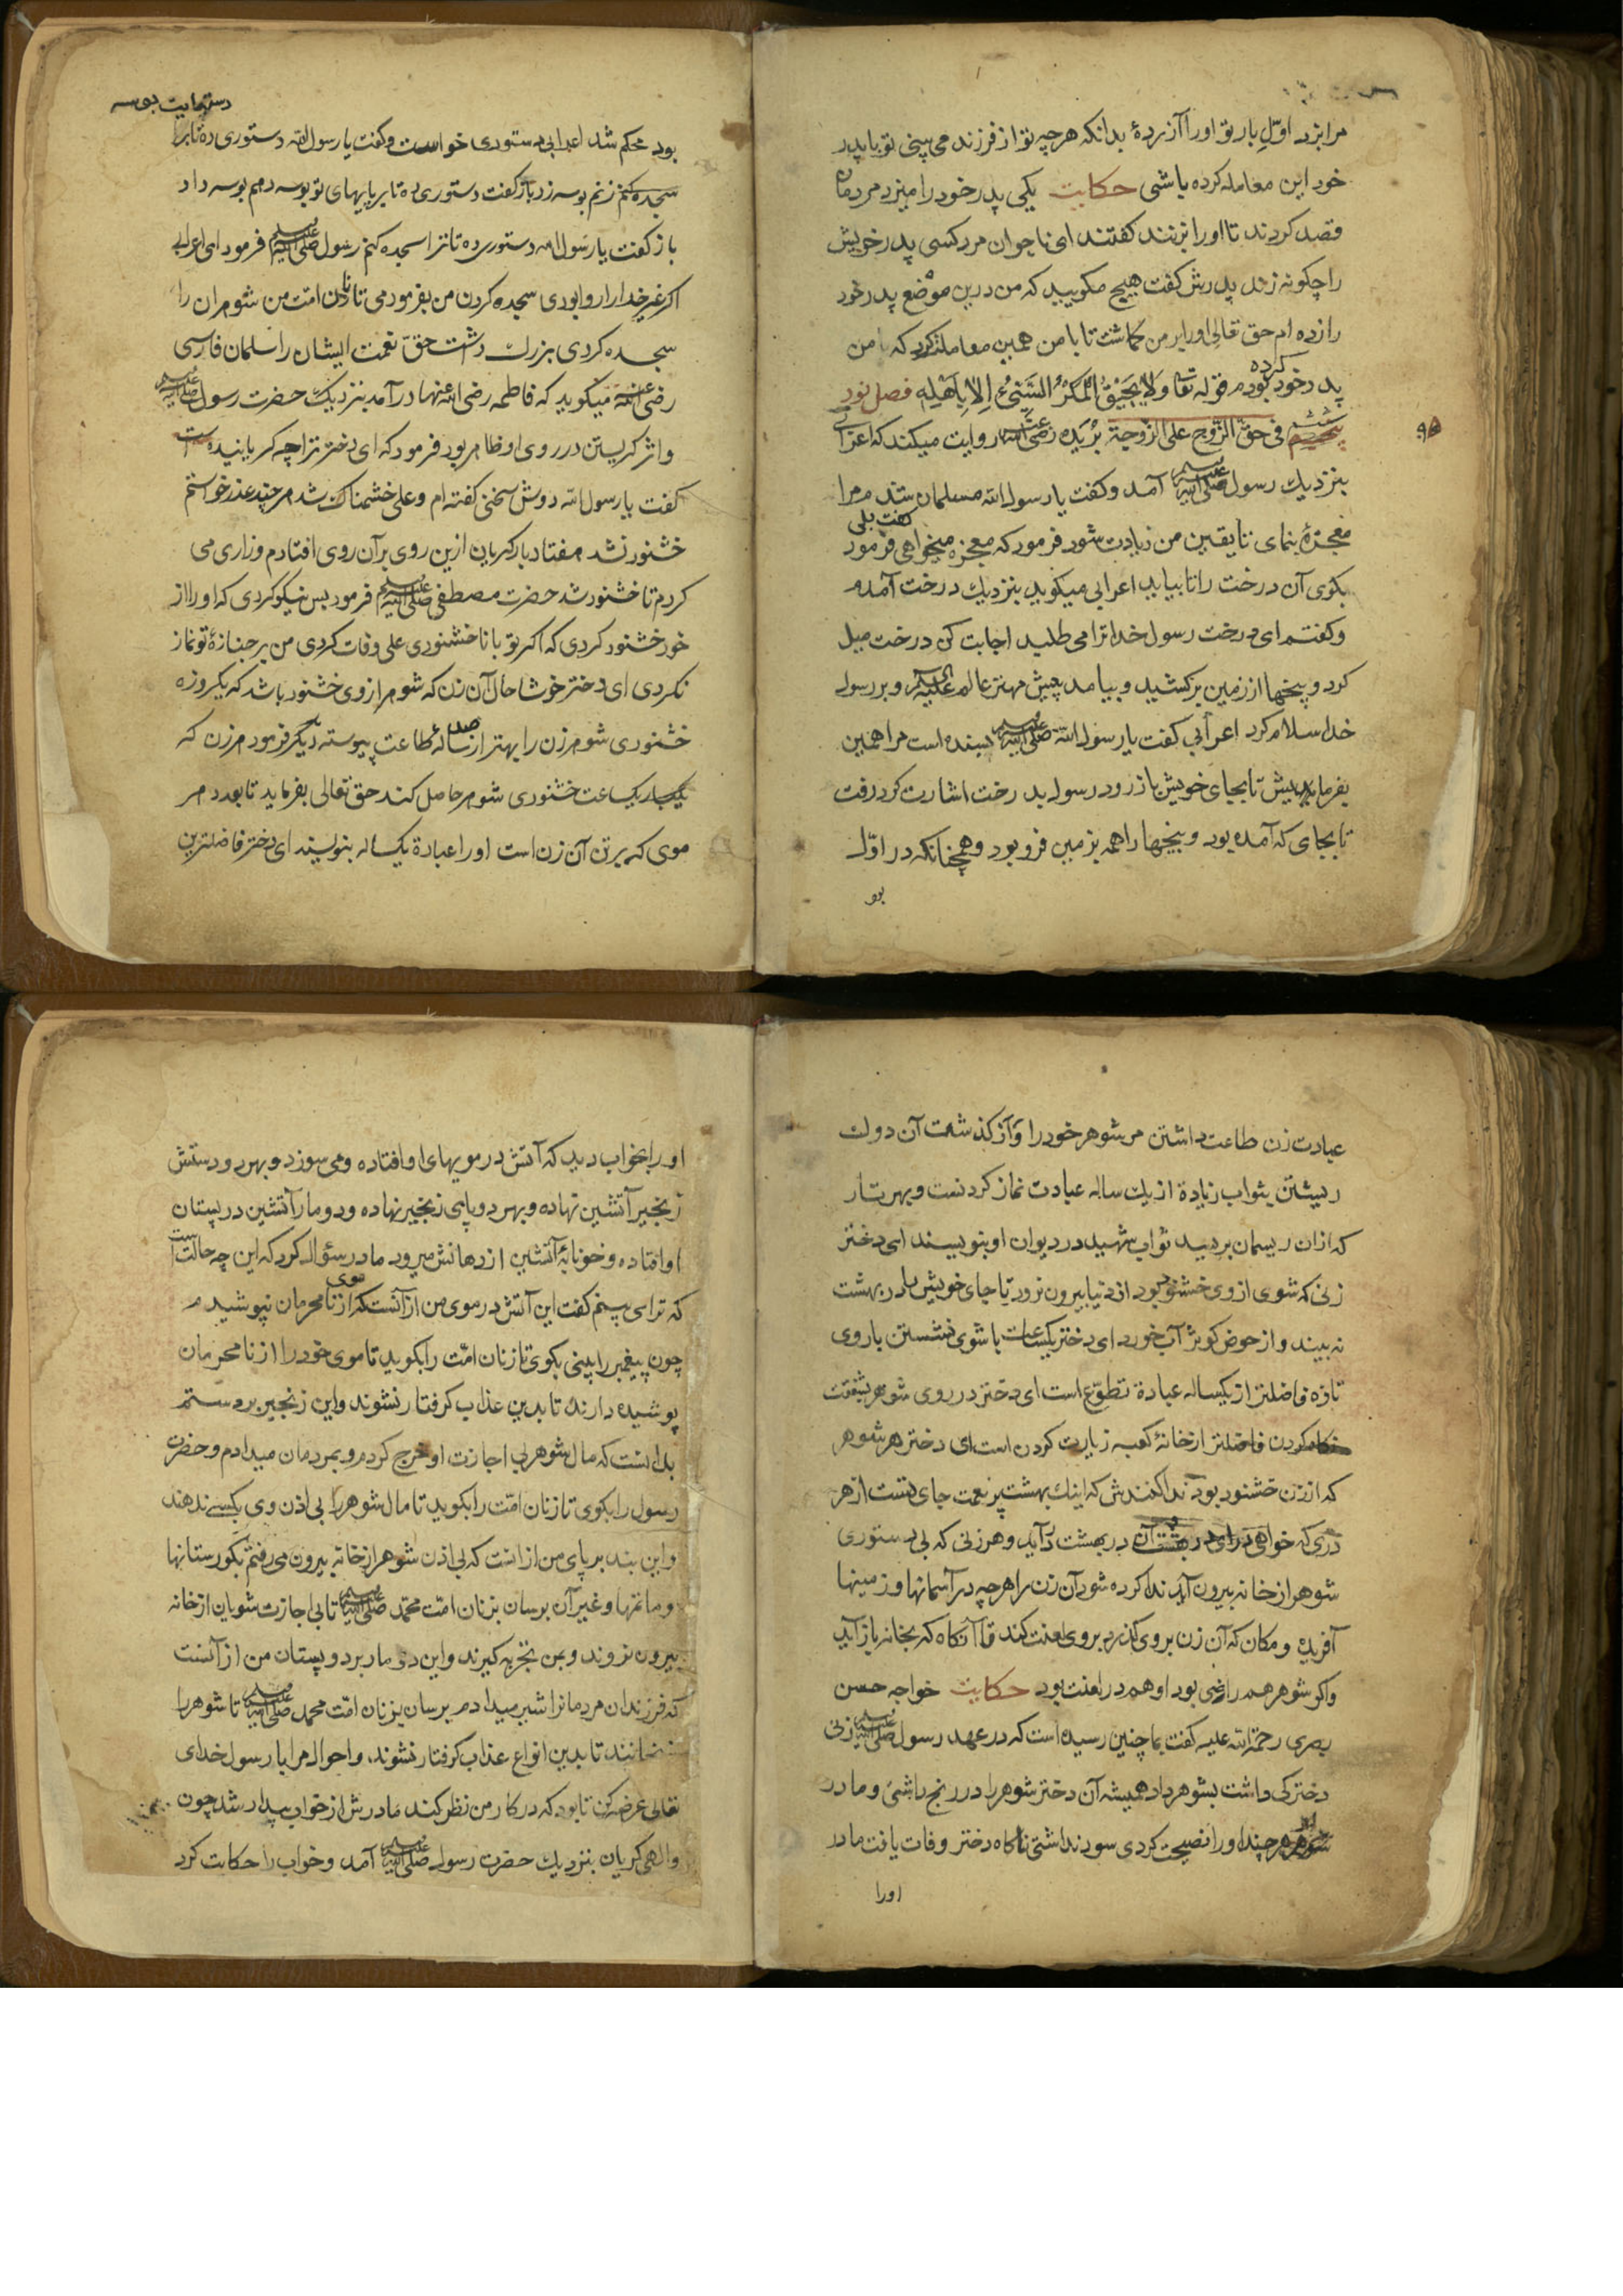 مرا بزد اوّلِ بار تو او را آزردهٔ بدانکه هرچه تو از فرزند می بینی تو با پدر
خود این معامله کرده باشی حکایت یکی پدر خود را میزد مردمان
قصد کردند تا او را بزنند کفتند ای ناجوان مرد کسی پدر خویش
را چکونه زند پدرش کفت هیچ مکویید که من درین موضع پدر خود
را زده ام حق تعالی او را بر من کماشت تا با من همین معامله کرد که با من
پدر خود کرده بودم قوله تعا وَلَا یَحِیْقُ الْمَکْرُ السَّیِّئُ اِلَّا بِاَهْلِهِ فصل نود
ششم فی حقّ الزّوج علی الزّوجة بُرَیْدَه رضی الله عنه روایت میکند که اعرابی
بنزدیك رسول صلی الله علیه وسلم آمد و کفت یا رسول الله مسلمان شدم مرا
معجزهٔ بنمای تا یقین من زیادت شود فرمود که معجزه میخواهی کفت بلی فرمود
بکوی آن درخت را تا بیاید اعرابی میکوید بنزدیك درخت آمدم
و کفتم ای درخت رسول خدا ترا می طلبد اجابت کن درخت میل
کرد و بیخها از زمین برکشید و بیامد پیش مهتر عالم علیه السلام و بر رسول
خدا سلام کرد اعرابی کفت یا رسول الله صلی الله علیه وسلم بسنده است مرا همین
بفرمایش تا بجای خویش باز رود رسول بدرخت اشارت کرد رفت
تا بجای که آمده بود و بیخها را همه بزمین فرو بود و همچنانکه در اوّل
بود
دستهایت بوسه
بود محکم شد اعرابی دستوری خواست و کفت یا رسول الله دستوری ده تا برا
سجده کنم زنم بوسه زد باز کفت دستوری ده تا بر پایهای تو بوسه دهم بوسه داد
باز کفت یا رسول الله دستوری ده تا ترا سجده کنم رسول صلی الله علیه وسلم فرمود ای اعرابی
اکر غیر خدا را روا بودی سجده کردن من بفرمودمی تا زنان امّت من شوهران را
سجده کردی بزرك داشت حقّ نعمت ایشان را سلمان فارسی
رضی الله عنه میکوید که فاطمه رضی الله عنها در آمد بنزدیك حضرت رسول صلی الله علیه وسلم
و اثر کریستن در روی او ظاهر بود فرمود که ای دختر ترا چه کریانیده است
کفت یا رسول الله دوش سخنی کفته ام و علی خشمناك شد هر چند عذر خواستم
خشنود نشد هفتاد بار کریان ازین روی بر آن روی افتادم و زاری می
کردم تا خشنود شد حضرت مصطفی صلی الله علیه وسلم فرمود بس نیکو کردی که او را از
خود خشنود کردی که اکر تو با ناخشنودی علی وفات کردی من بر جنازهٔ تو نماز
نکردی ای دختر خوشا حال آن زن که شوهر از وی خشنود باشد که یکروزه
خشنودی شوهر زن را بهتر از صد ساله طاعت پیوسته دیکر فرمود هر زن که
یکبار یکساعت خشنودی شوهر حاصل کند حق تعالی بفرماید تا بعدد هر
موی که بر تن آن زن است او را عبادة یکساله بنویسند ای دختر فاضلترین
عبادت زن طاعت داشتن مر شوهر خود را و از کذشت آن دوك
ریشتن بثواب زیادة از یك ساله عبادت نماز کردنست و بهر تار
که از ان ریسمان بردید ثواب شهید در دیوان او بنویسند ای دختر
زنی که شوی از وی خشنود بود از دنیا بیرون نرود تا جای خویش را در بهشت
نه بیند و از حوض کوثر آب خورد ای دختر یکساعت با شوی نشستن با روی
تازه فاضلتر از یکساله عبادة تطوّع است ای دختر در روی شوهر بشفقت
کردن فاضلتر از خانهٔ کعبه زیارت کردن است ای دختر هر شوهر
که از زن خشنود بود ندا کنندش که اینك بهشت پر نعمت جای تست از هر
دری که خواهی درای در بهشت در آید و هر زنی که بی دستوری
شوهر از خانه بیرون آید ندا کرده شود آن زن را هرچه در آسمانها و زمینها
آفریده و مکان که آن زن بروی کذرد بروی لعنت کند تا آنکاه که بخانه باز آید
و اکر شوهر هم راضی بود او هم در لعنت بود حکایت خواجه حسن
بصری رحمة الله علیه کفت بما چنین رسیده است که در عهد رسول صلی الله علیه وسلم زنی
دخترکی داشت بشوهر داد همیشه آن دختر شوهر را در رنج داشتی و مادر
هر چند او را نصیحت کردی سود نداشتی ناکاه دختر وفات یافت مادر
او را
او را بخواب دید که آتش در مویهای او افتاده و می سوزد و بهر دو دستش
زنجیر آتشین نهاده و بهر دو پای زنجیر نهاده و دو مار آتشین در پستان
او افتاده و خونابهٔ آتشین از دهانش میرود مادر سؤال کرد که این چه حالت است
که ترا می بینم کفت این آتش در موی من از آنست که موی از نامحرمان نپوشیدم
چون پیغمبر را بینی بکوی تا زنان امّت را بکوید تا موی خود را از نامحرمان
پوشیده دارند تا بدین عذاب کرفتار نشوند و این زنجیر بر دستم
بدانست که مال شوهر بی اجازت او خرج کردم و بمردمان میدادم و حضرت
رسول را بکوی تا زنان امّت را بکوید تا مال شوهر را بی اذن وی بکسی ندهند
و این بند بر پای من از انست که بی اذن شوهر از خانه بیرون می رفتم بکورستانها
و ماتمها و غیر آن برسان بزنان امّت محمّد صلی الله علیه وسلم تا بی اجازت شویان از خانه
بیرون نروند و بمن تجربه کیرند و این دو مار بر دو پستان من از آنست
که فرزندان مردمانرا شیر میدادم برسان بزنان امّت محمد صلی الله علیه وسلم تا شوهر را
نرنجانند تا بدین انواع عذاب کرفتار نشوند، و احوال مرا با رسول خدای
تعالی عرضه کن تا بود که در کار من نظر کند مادرش از خواب بیدار شد چون
والهی کریان بنزدیك حضرت رسول صلی الله علیه وسلم آمد و خواب را حکایت کرد